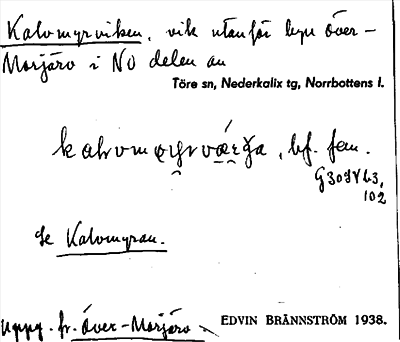 Kalvmyrviken, vik utanför byn Över-
Morjärv i NO delen av
Töre sn, Nederkalix tg, Norrbottens l.
bf. fem.
G3098 63,
102
Se Kalvmyran.
Uppg. fr. Över-Morjärv
EDVIN BRÄNNSTRÖM 1938.